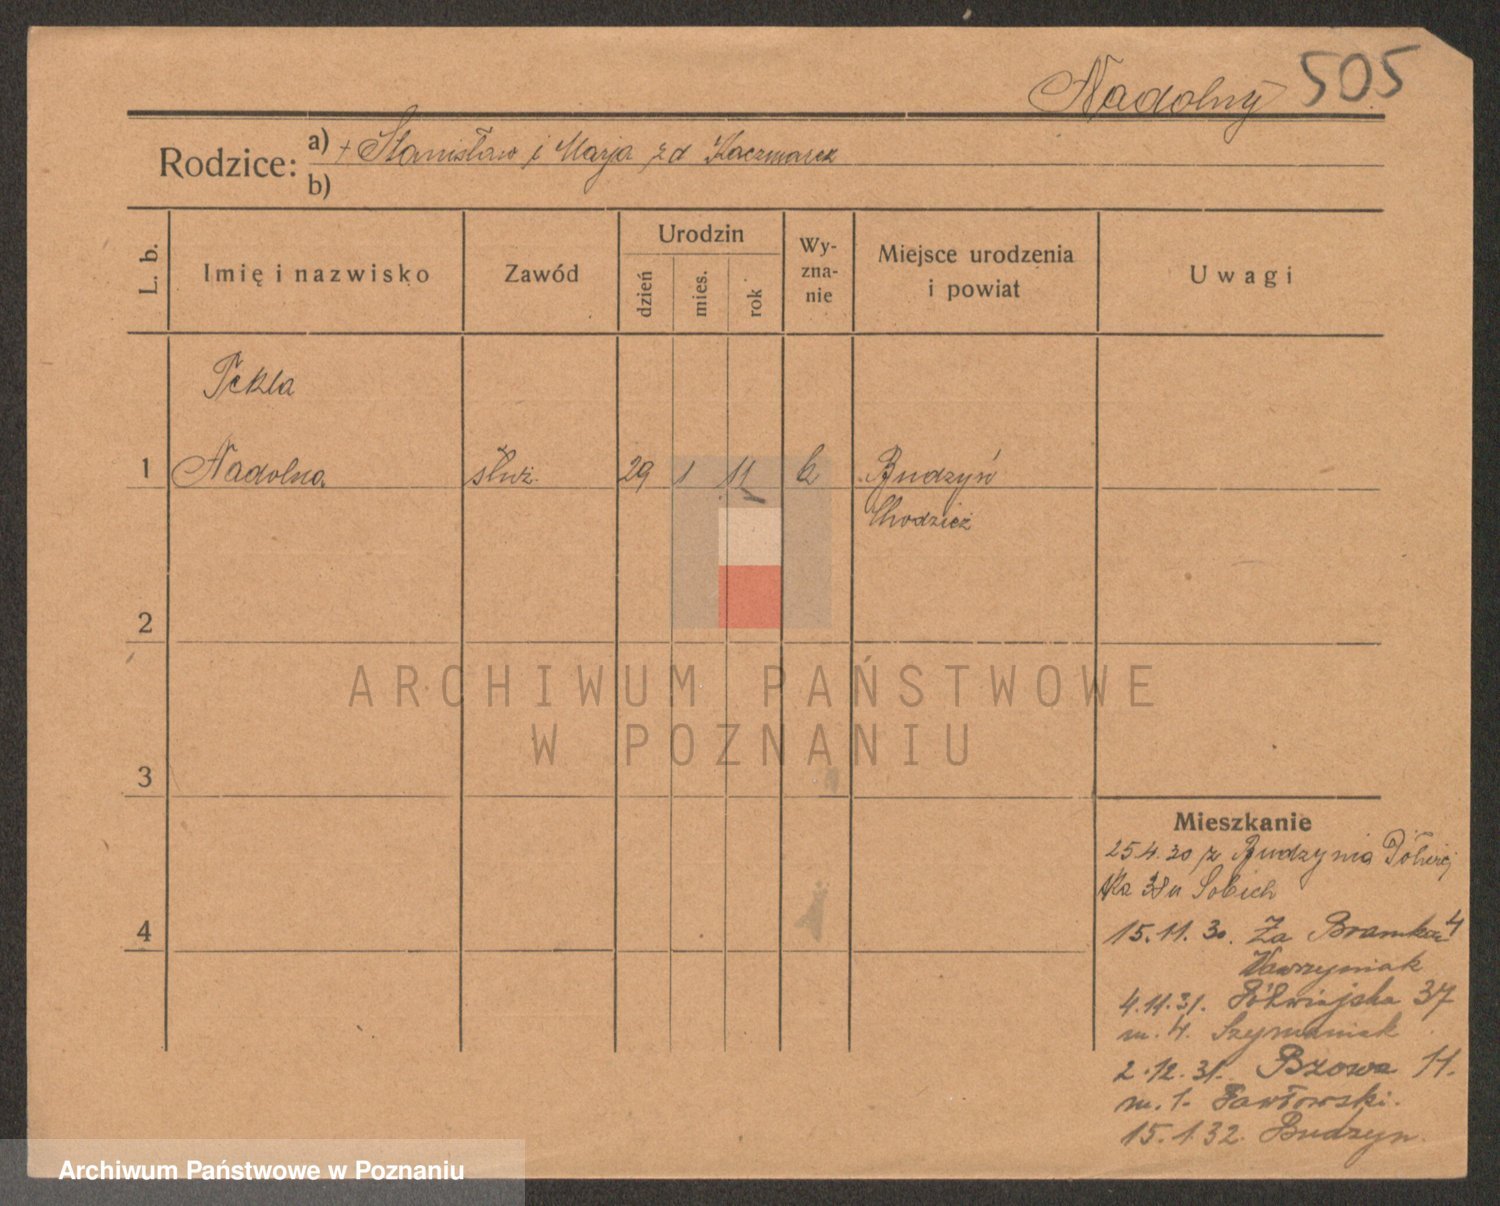 Nadolny 505
Rodzice: a) + Stanisław i Marja zd Kaczmarek
b)
L. b. Imię i nazwisko Zawód Urodzin dzień mies. rok Wy-zna-nie Miejsce urodzenia i powiat Uwagi
Tekla
1 Nadolna służ. 29 1 11 k Budzyń
Chodzież
2
ARCHIWUM PAŃSTWOWE
W POZNANIU
3
Mieszkanie
25.4.30 z Budzynia
38 u Sobich
4
15.11.30. Za Bramką 4
Wawrzyniak
4.11.31. Półwiejska 37
m. 4. Szymaniak
2.12.31. Bzowa 11.
m. 1. Pawłowski.
15.1.32. Budzyn.
Archiwum Państwowe w Poznaniu